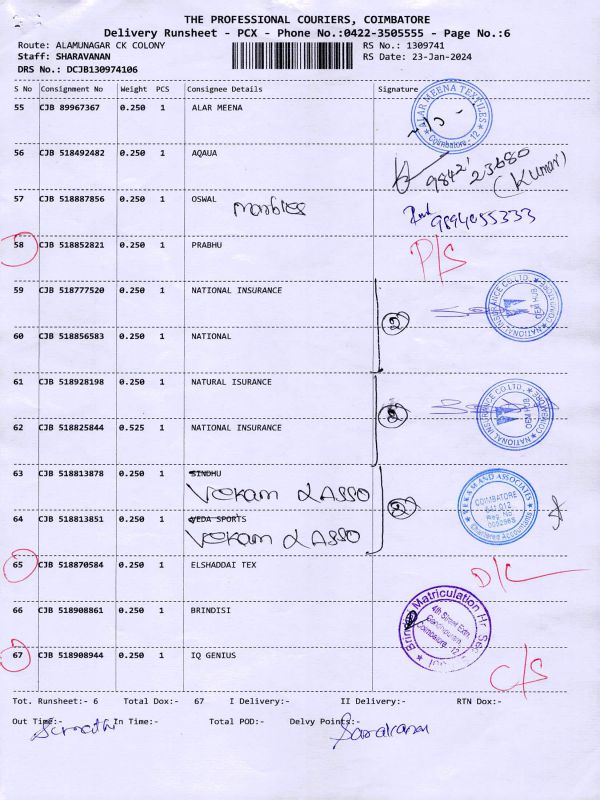 THE PROFESSIONAL COURIERS, COIMBATORE
Delivery Runsheet - PCX - Phone No.:0422-3505555 - Page No.:6
Route: ALAMUNAGAR CK COLONY RS No.: 1309741
Staff: SHARAVANAN RS Date: 23-Jan-2024
DRS No.: DCJB130974106
S No Consignment No Weight PCS Consignee Details Signature
55 CJB 89967367 0.250 1 ALAR MEENA
ALAR MEENA TEXTILES
Coimbatore - 12
56 CJB 518492482 0.250 1 AQAUA
98421 23680
(Kumar)
57 CJB 518887856 0.250 1 OSWAL marbles
9894055333
58 CJB 518852821 0.250 1 PRABHU P/S
59 CJB 518777520 0.250 1 NATIONAL INSURANCE
NATIONAL INSURANCE CO. LTD. COIMBATORE
60 CJB 518856583 0.250 1 NATIONAL
2
61 CJB 518928198 0.250 1 NATURAL ISURANCE
NATIONAL INSURANCE CO. LTD. COIMBATORE
62 CJB 518825844 0.525 1 NATIONAL INSURANCE
2
63 CJB 518813878 0.250 1 SINDHU
VEKAM & ASSO
2
VEKAM AND ASSOCIATES
COIMBATORE
641 012
Chartered Accountants
64 CJB 518813851 0.250 1 VEDA SPORTS
VEKAM & ASSO
65 CJB 518870584 0.250 1 ELSHADDAI TEX D/L
66 CJB 518908861 0.250 1 BRINDISI
Matriculation Hr Sec
4th Street Extn.
Gandhipuram
Coimbatore - 12
67 CJB 518908944 0.250 1 IQ GENIUS C/S
Tot. Runsheet:- 6 Total Dox:- 67 I Delivery:- II Delivery:- RTN Dox:-
Out Time:- In Time:- Total POD:- Delvy Points:-
Saravanan